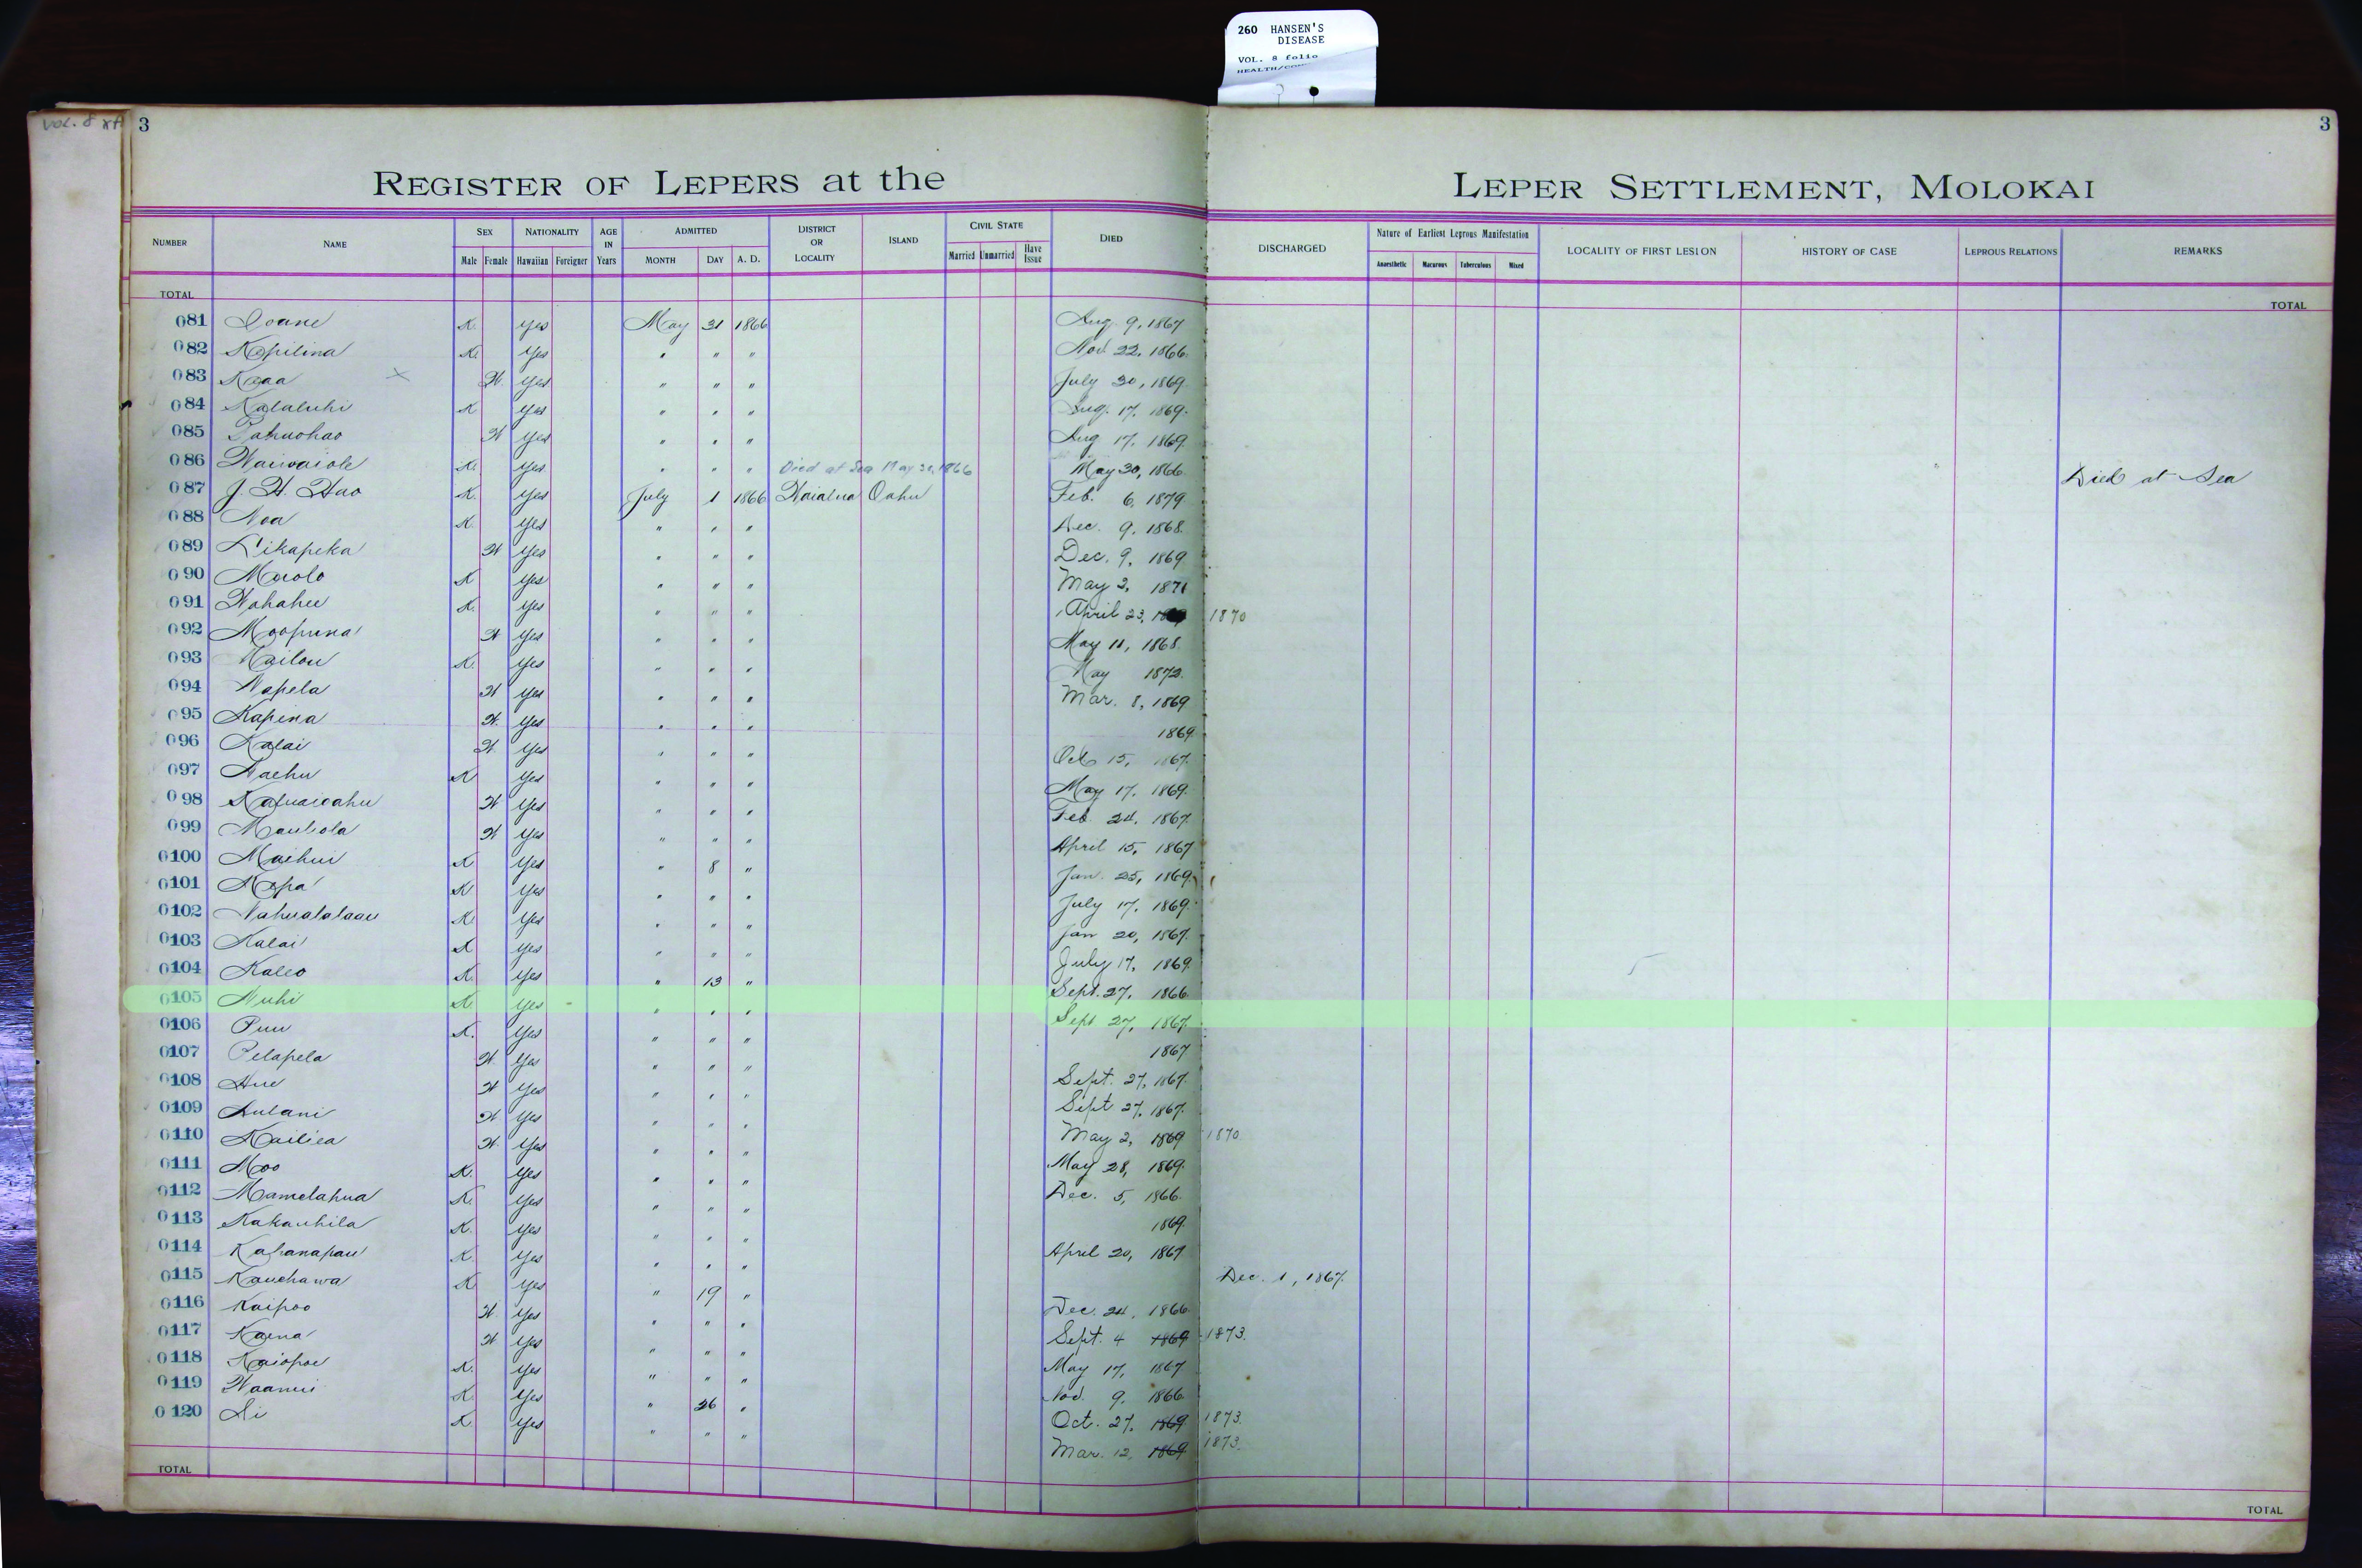 260 HANSEN'S
DISEASE
VOL. 8 folio
VOL. 8
3
3
REGISTER OF LEPERS at the LEPER SETTLEMENT, MOLOKAI
NUMBER NAME SEX NATIONALITY AGE IN Years ADMITTED DISTRICT OR LOCALITY ISLAND CIVIL STATE DIED DISCHARGED Nature of Earliest Leprous Manifestation LOCALITY OF FIRST LESION HISTORY OF CASE LEPROUS RELATIONS REMARKS
Male Female Hawaiian Foreigner MONTH DAY A. D. Married Unmarried Have Issue Anaesthetic Macurous Tuberculous Mixed
TOTAL TOTAL
081 Ioane K. Yes May 31 1866 Aug. 9, 1867
082 Kapilina K. Yes " " " Nov. 22, 1866.
083 Kaaa x W. Yes " " " July 30, 1869.
084 Kalaluhi K Yes " " " Aug. 17, 1869.
085 Pahuohao W Yes " " " Aug 17, 1869.
086 Waiwaiole K. Yes " " " Died at Sea May 30, 1866 May 30, 1866. Died at Sea
087 J. H. Hao K. Yes July 1 1866 Waialua Oahu Feb. 6, 1879
088 Noa K. Yes " " " Dec. 9, 1868.
089 Likapeka W Yes " " " Dec. 9, 1869
090 Maolo K Yes " " " May 2, 1871
091 Wahahee K. Yes " " " April 23, 1870
092 Moopuna W Yes " " " May 11, 1868.
093 Kailou K. Yes " " " May 1872.
094 Napela W Yes " " " Mar. 8, 1869
095 Kapina W. Yes " " " 1869.
096 Kalai W. Yes " " " Oct 15, 1867.
097 Naehu K Yes " " " May 17, 1869.
098 Kapuaioahu W Yes " " " Feb. 24, 1867.
099 Mauliola W Yes " " " April 15, 1867
0100 Maihui K Yes " 8 " Jan. 25, 1869.
0101 Napa K Yes " " " July 17, 1869.
0102 Nahualalaau K. Yes " " " Jan 20, 1867.
0103 Kalai K Yes " " " July 17, 1869.
0104 Kaleo K. Yes " 13 " Sept. 27, 1866.
0105 Nuhi K. Yes " " " Sept 27, 1867.
0106 Puu K. Yes " " " 1867
0107 Pelapela W Yes " " " Sept. 27, 1867.
0108 Hue W Yes " " " Sept 27, 1867.
0109 Aulani W. Yes " " " May 2, 1869 1870.
0110 Kailiea W. Yes " " " May 28, 1869.
0111 Moo K. Yes " " " Dec. 5, 1866.
0112 Mamelahua K. Yes " " " 1869.
0113 Kakauhila K. Yes " " " April 20, 1867
0114 Kahanapau K. Yes " " " Dec. 1, 1867.
0115 Kauehawa K. Yes " 19 " Dec. 24, 1866.
0116 Kaipoo W. Yes " " " Sept. 4 1869 1873.
0117 Kaena W Yes " " " May 17, 1867
0118 Kaiopoe K. Yes " " " Nov. 9, 1866.
0119 Waanui K. Yes " 26 " Oct. 27, 1869 1873.
0120 Li K. Yes " " " Mar. 12, 1869 1873.
TOTAL TOTAL